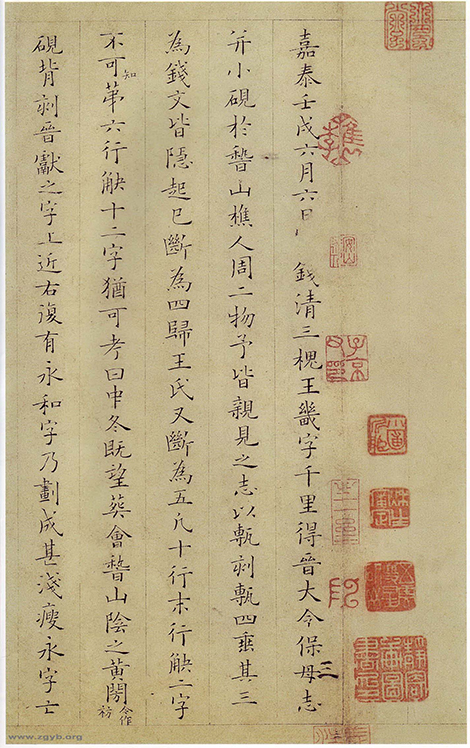 嘉泰壬戌六月六日 錢清三槐王畿字千里得晉大令保母志
三
并小硯於稽山樵人周二物予皆親見之志以甎刻甎四垂其三
為錢文皆隱起已斷為四歸王氏又斷為五凡十行末行觖二字
不可知第六行觖十二字猶可考曰中冬既望葬會稽山陰之黃閍今作祊
硯背刻晉獻之字上近右復有永和字乃劃成甚淺瘦永字亡
檇李
子京父印
www.zgyb.org